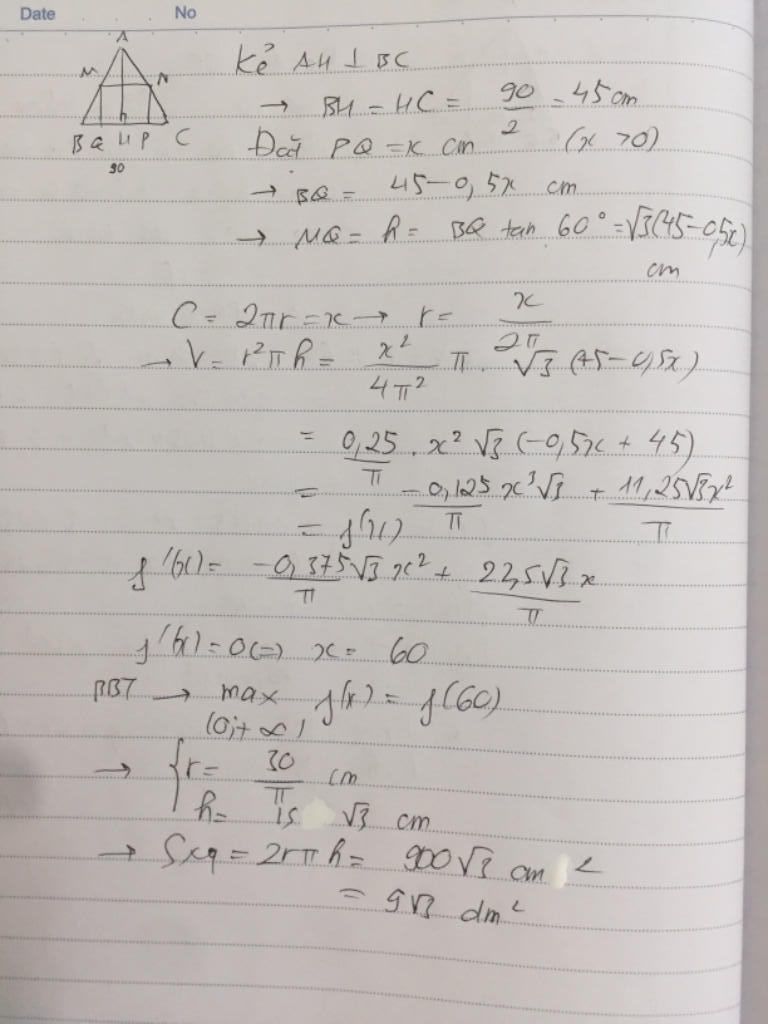 Date No
A
M N
h
B Q H P C
90
Kẻ AH ⊥ BC
→ BH = HC = 90/2 = 45 cm
Đặt PQ = x cm (x > 0)
→ BQ = 45 - 0,5x cm
→ MQ = h = BQ tan 60° = √3(45 - 0,5x)
cm
C = 2πr = x → r = x/2π
→ V = r²πh = x²/4π² π . √3 (45 - 0,5x)
= 0,25/π . x² √3 (-0,5x + 45)
= -0,125/π x³√3 + 11,25√3x²/π
= f(x)
f'(x) = -0,375√3/π x² + 22,5√3 x/π
f'(x) = 0 (=) x = 60
BBT → max f(x) = f(60)
(0;+∞)
→ { r = 30/π cm
h = 15 √3 cm
→ Sxq = 2rπh = 900√3 cm²
= 9√3 dm²